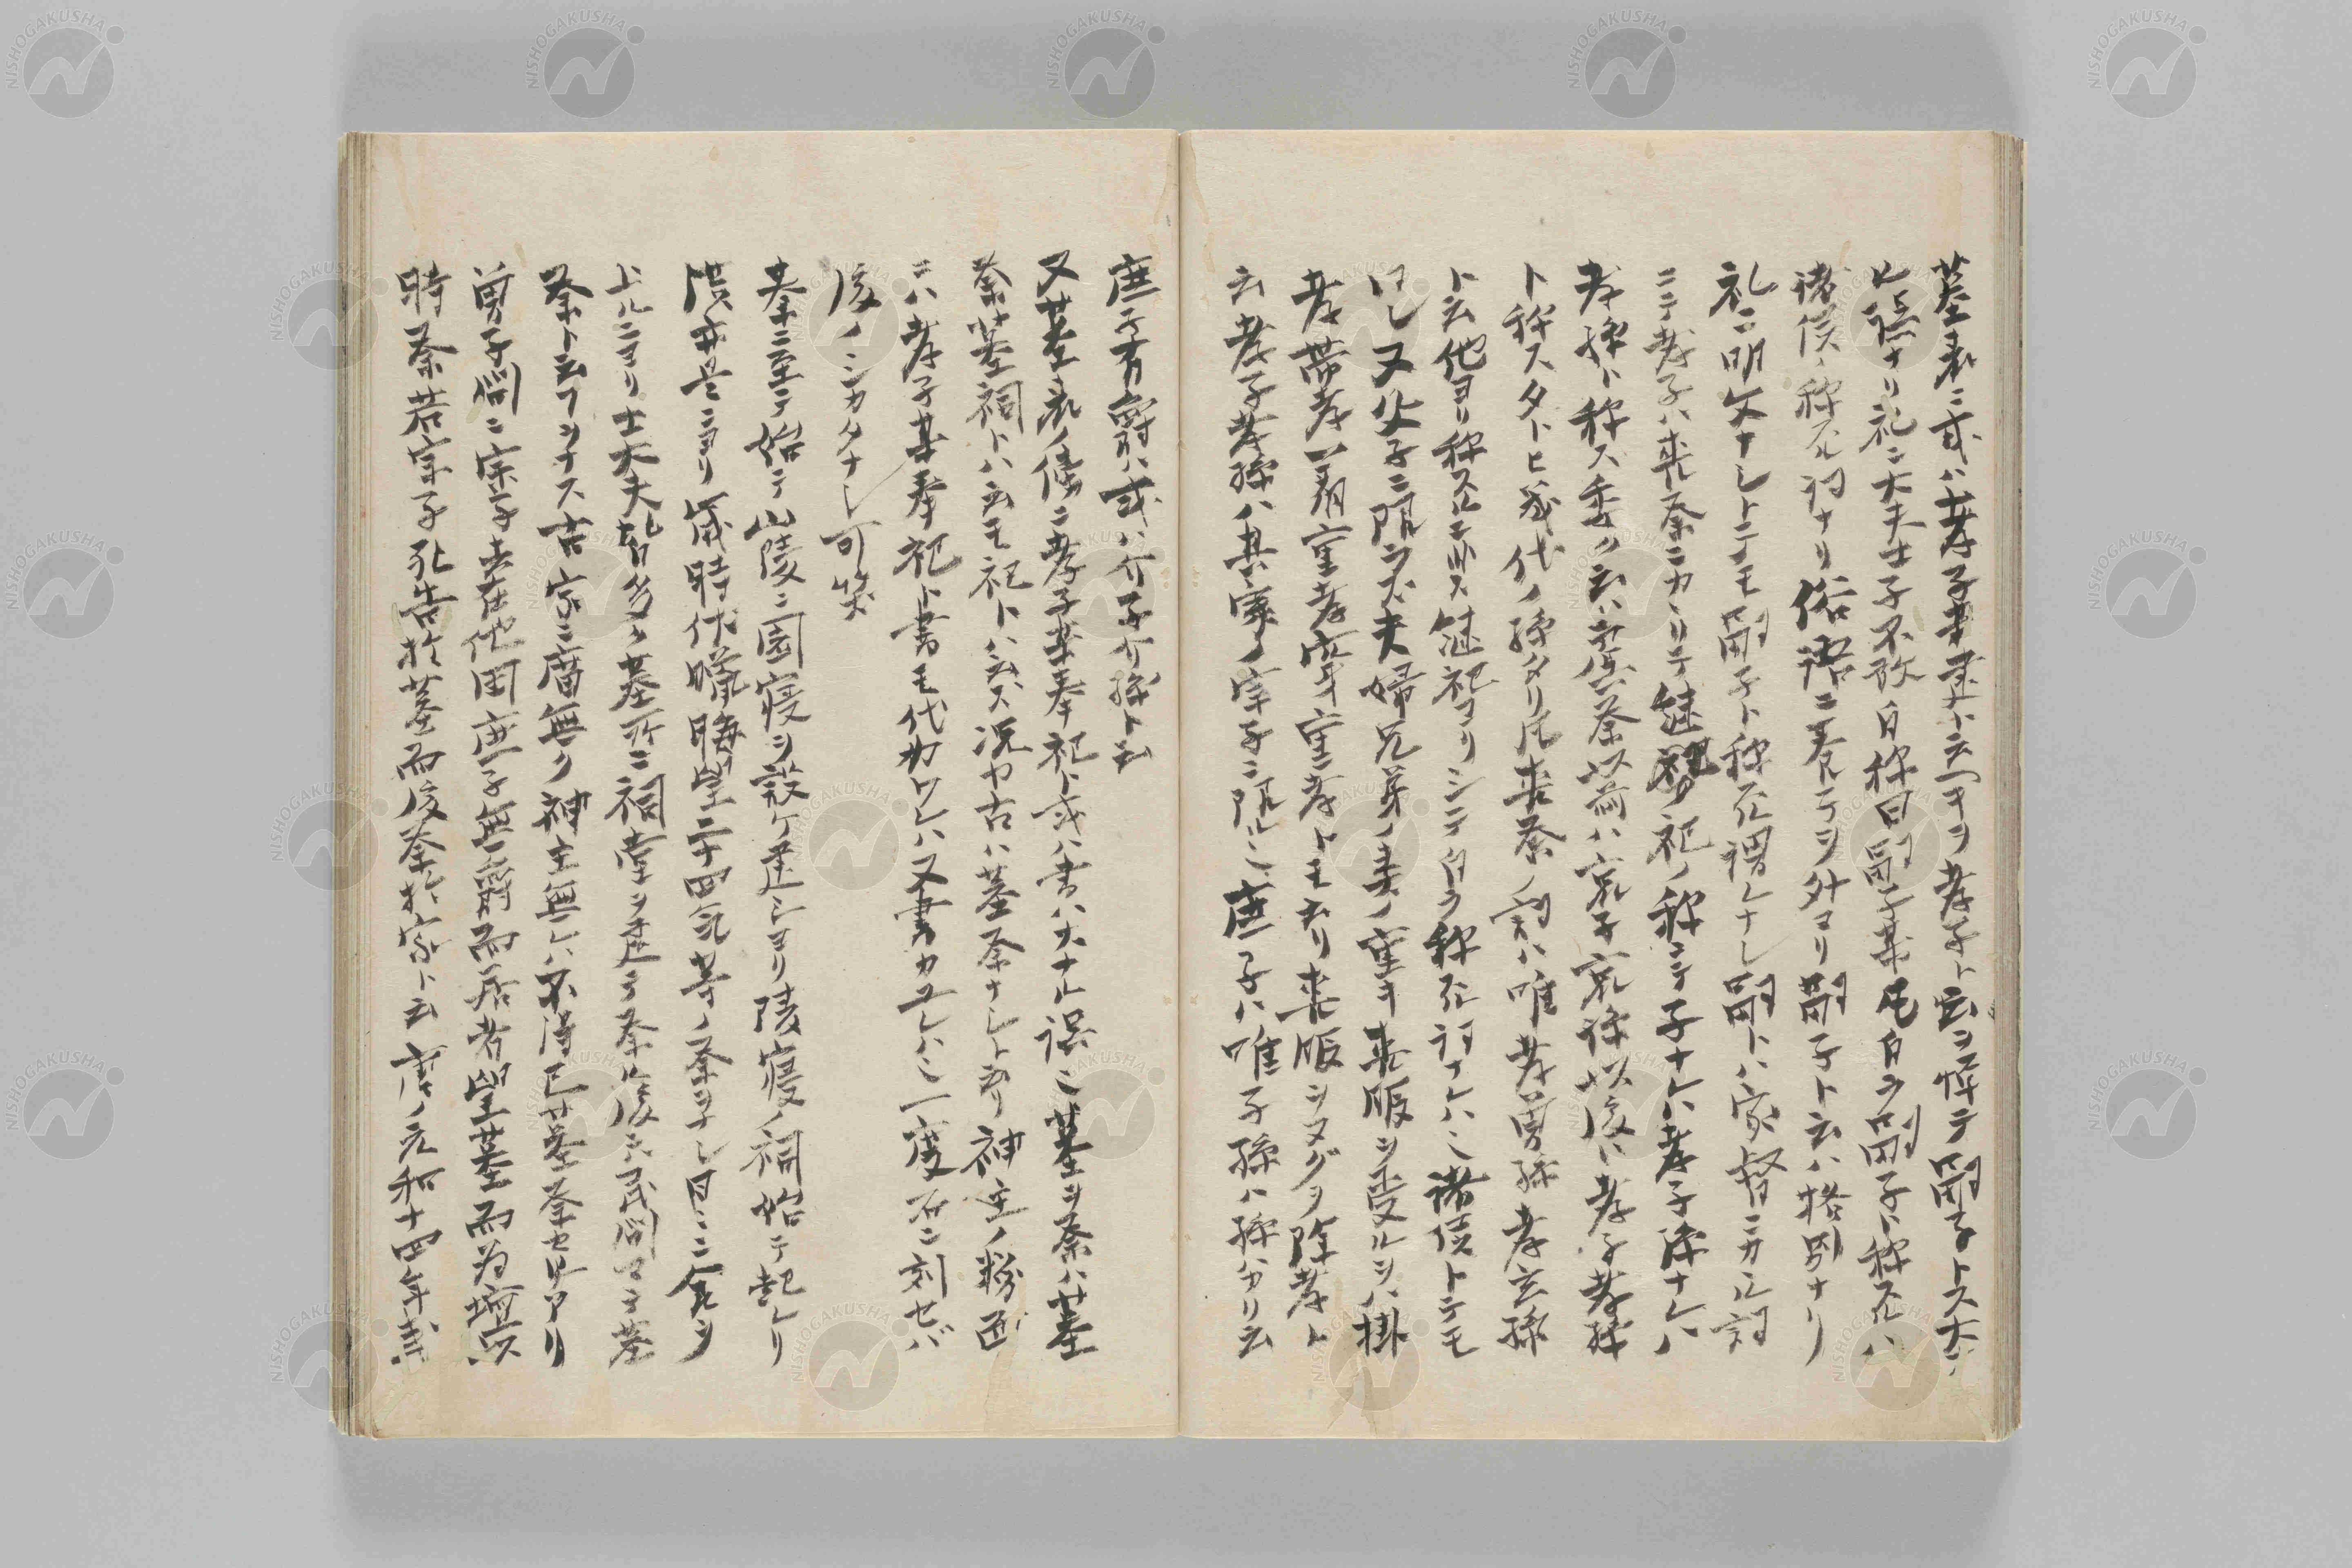 墓表ニ或ハ孝子某建ト云フヲ孝子ト云ヲ憚テ嗣子トス大ナ
ル誤ナリ礼ニ大夫士子不敢自称曰嗣子某凡自ラ嗣子ト称スルハ
諸侯ノ称スル詞ナリ俗語ニ養テヲ外ヨリ嗣子ト云ハ格別ナリ
礼ニ明文ナシトテモ嗣子ト称スル謂レナシ嗣トハ家督ニカル詞
ニテ孝子ハ喪祭ニカヽリテ継祀ノ称ニテ子ナレハ孝子孫ナレハ
孝孫ト称ス委ク云ハ虞祭以前ハ哀子哀孫以後ハ孝子孝孫
ト称スタトヒ幾代ノ孫タリ氏喪祭ノ詞ハ唯孝曽孫孝玄孫
ト云他ヨリ称スルニ非ス継祀ヨリシテ自ラ称スル詞ナレハ諸侯トテモ
同シ又父子ニ限ラズ夫婦兄弟ノ喪ノ重キ喪服ヲ受ルヲハ掛
孝帯孝一着重孝穿重孝トモ云リ喪服ヲヌグヲ除孝ト
云孝子孝孫ハ其家ノ宗子ニ限ル庶子ハ唯子孫ハ孫ハカリ云
庶子有爵ハ或ハ介子介孫ト云
又墓表ノ傍ニ孝子某奉祀ト或ハ書ハ大ナル誤ミ墓ヲ祭ハ廿墓
祭墓祠トハ云モ祀トハ云ス況ヤ古ハ墓祭ナシト云リ神主ノ粉面
ニハ孝子某奉祀ト書モ代カワレハ又書カユレハミ一度石ニ刻セバ
後ノシカタナシ可笑
秦ニ至テ始テ山陵ニ園寝ヲ設ケ建シヨリ陵寝ノ祠始テ起レリ
漢亦是ニヨリ歳時伏臘晦望二十四気等ノ祭ヲナシ日ニ二食ヲ
上ルニヨリ士大夫皆多ク墓所ニ祠堂ヲ建テ祭後ニハ民間マテ墓
祭ト云フヲナス古家ニ廟無ク神主無レハ不得已墓祭セシアリ
曽子問ニ宗子去在他国庶子無爵而居者望墓而為壇以
時祭若宗子死告於墓而後祭於家ト云唐ノ元和十四年